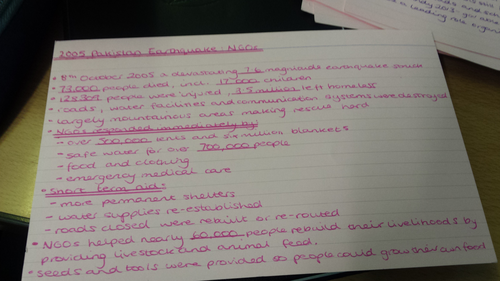 2005 Pakistan Earthquake NGOs
• 8th October 2005 a devastating 7.6 magnitude earthquake struck
• 73,000 people died, incl. 17,000 children
• people were injured, 3.5 million left homeless
• roads, water facilities and communication systems were destroyed
• largely mountainous areas making rescue hard
• NGOs responded immediately by:
- over 500,000 tents and six million blankets
- safe water for over 700,000 people
- food and clothing
- emergency medical care
• Short term aid:
- more permanent shelters
- water supplies re-established
- roads closed were rebuilt or re-routed
• NGOs helped nearly 60,000 people rebuild their livelihoods by
providing livestock and animal feed.
• seeds and tools were provided so people could grow their own food